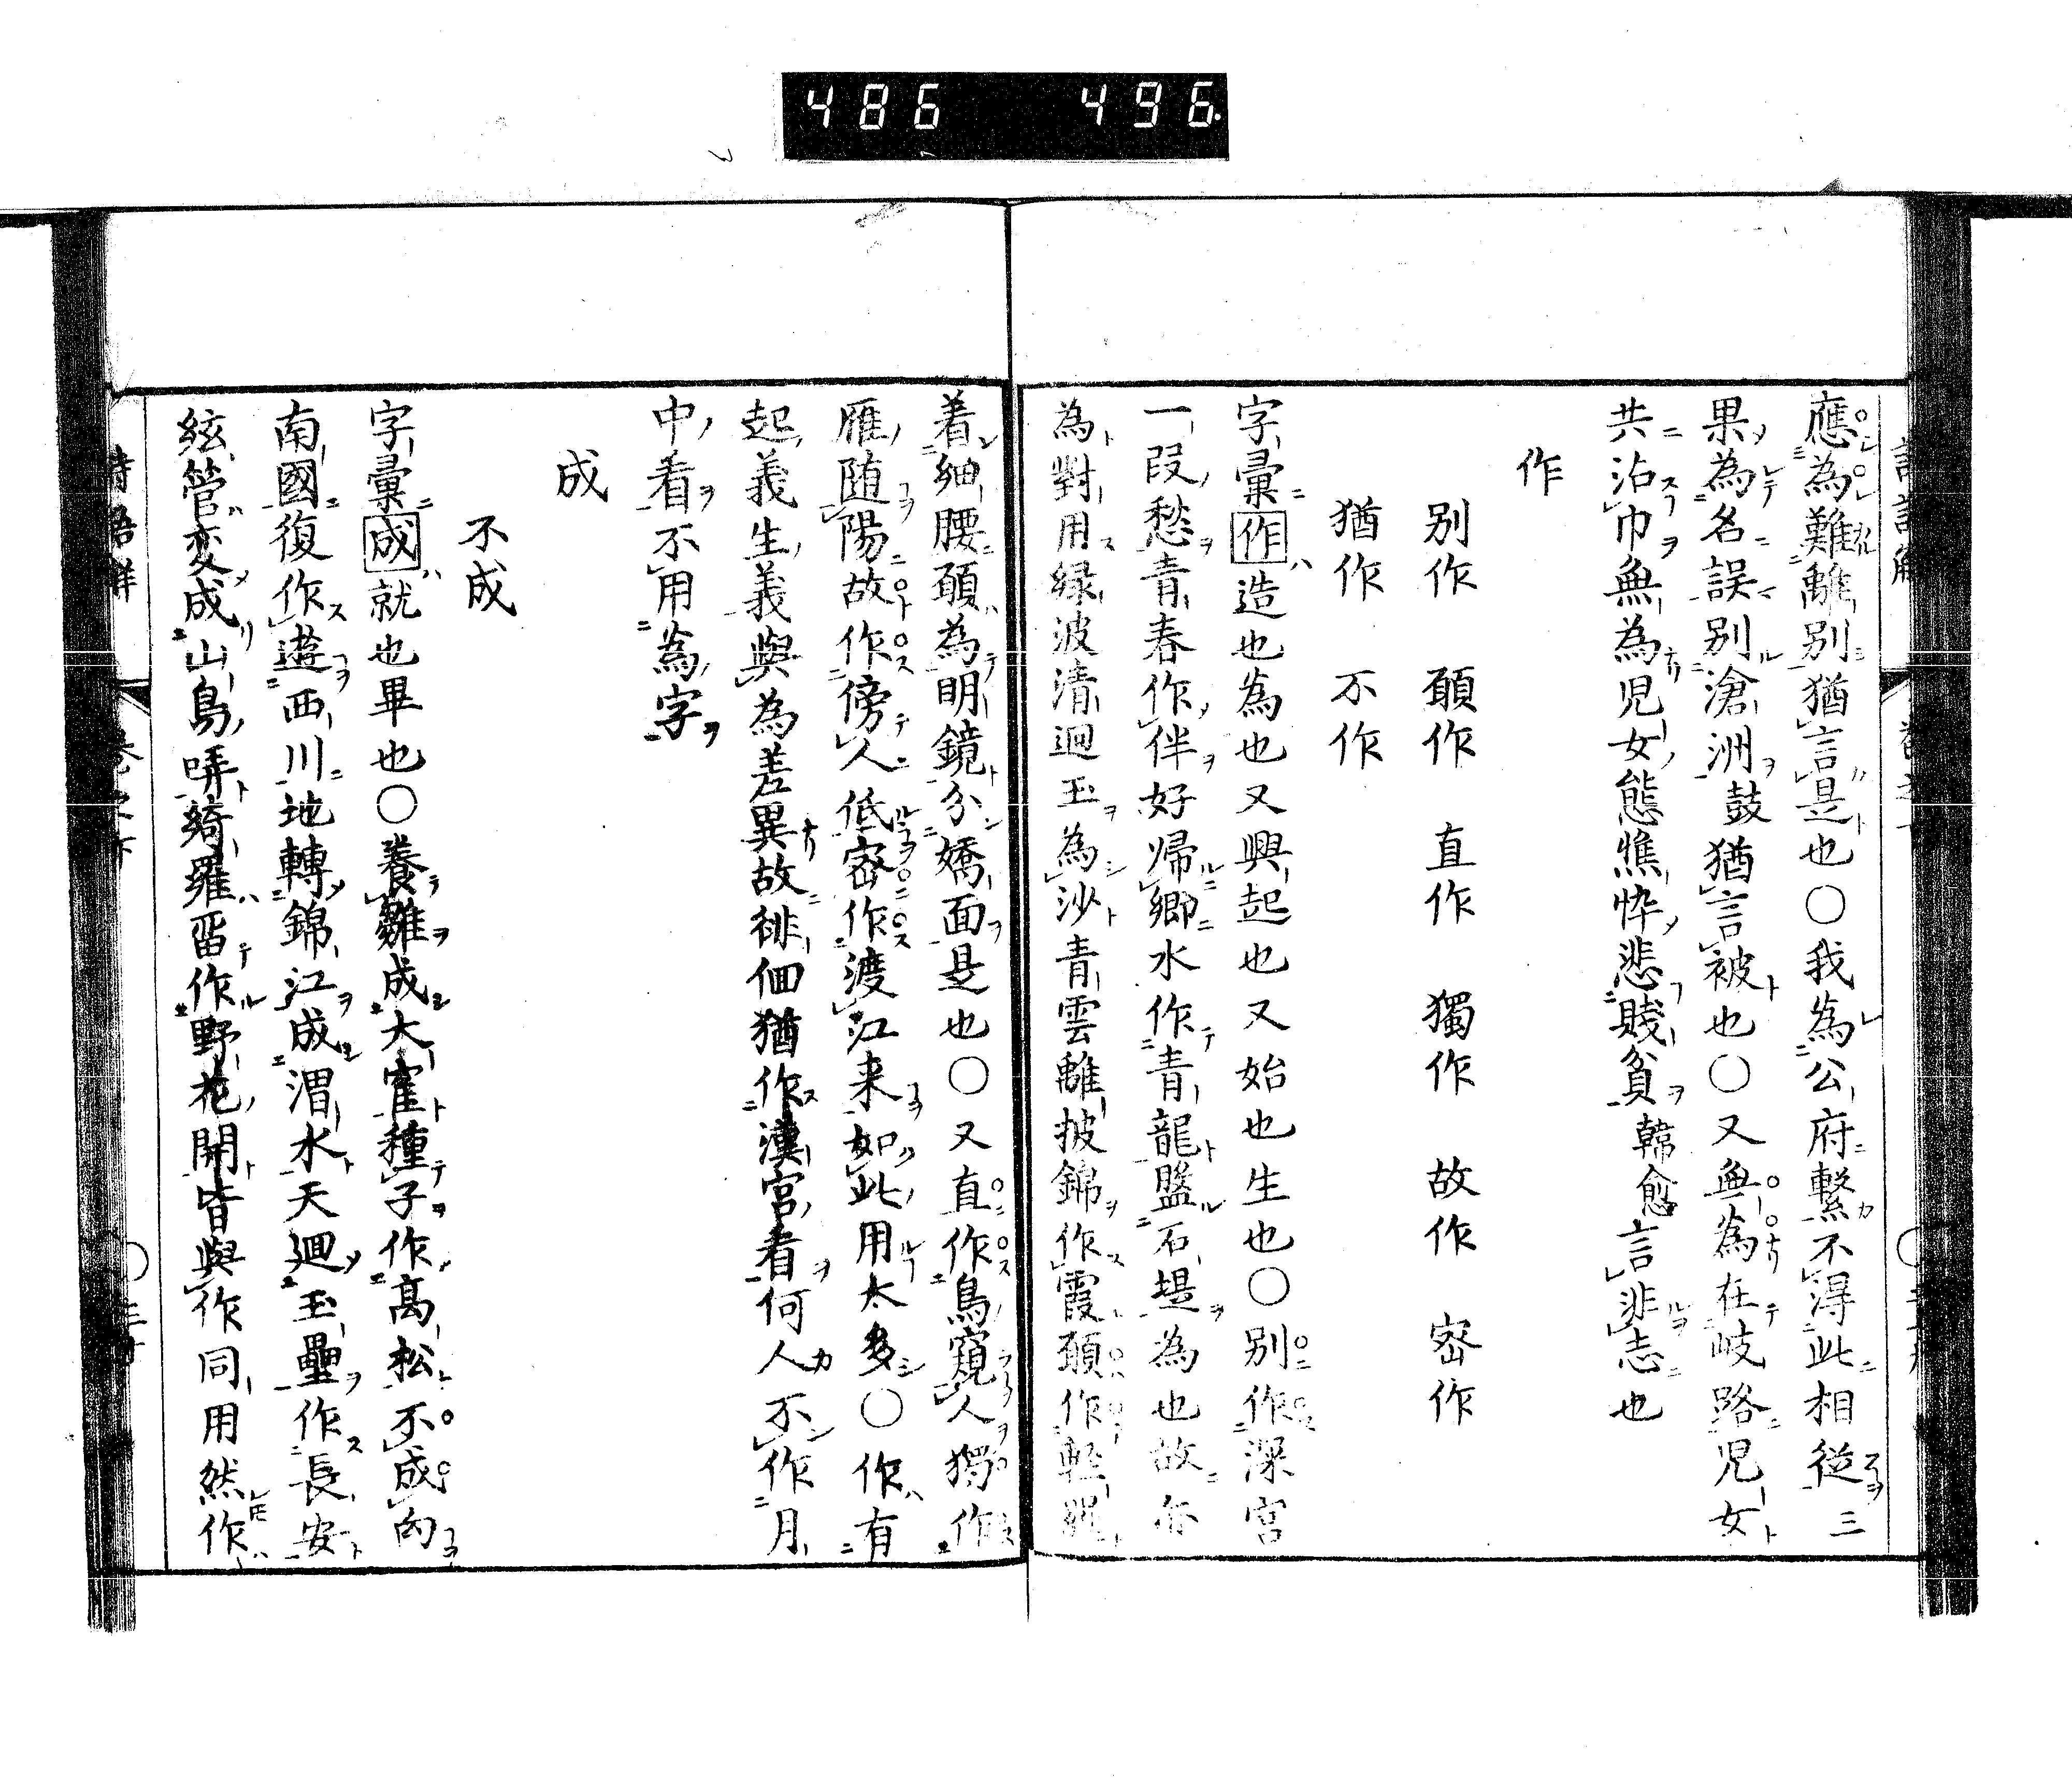 486 496.
應為難離別猶言是也○我為公府繫不得此相從三
果為名誤別滄洲鼓猶言被也○又無為在岐路児女
共沾巾無為児女態憔悴悲賤貧韓愈言非志也
作
別作 願作 直作 獨作 故作 密作
猶作 不作
字彙作造也為也又興起也又始也生也○別作深宮
一段愁青春作伴好帰郷水作青龍盤石堤為也故亦
為對用緑波清迴玉為沙青雲離披錦作霞願作軽羅
着細腰願為明鏡分嬌面是也○又直作鳥窺人獨作
雁随陽故作傍人低密作渡江来如此用太多○作有
起義生義與為差異故徘徊猶作漢宮看何人不作月
中看不用為字
成
不成
字彙成就也畢也○養雞成大隺種子作高松不成向
南國復作遊西川地轉錦江成渭水天迴玉壘作長安
絃管変成山鳥哢綺羅留作野花開皆與作同用然作